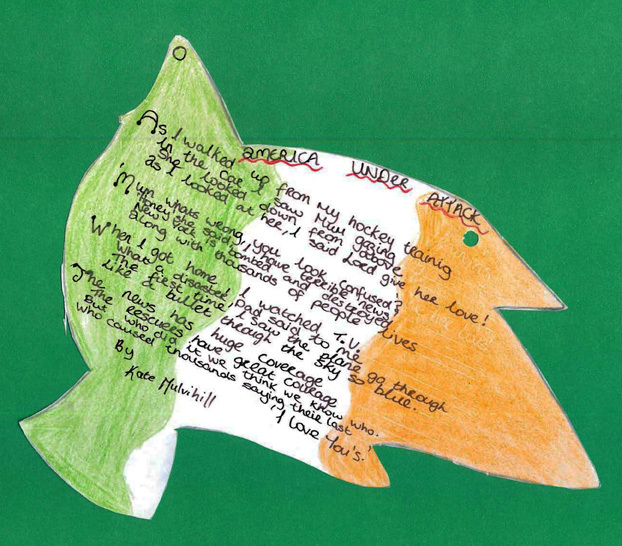 AMERICA UNDER ATTACK
As I walked up from my hockey trainig
In the car I saw Mum gazing
She looked down from above
as I looked at her, I said Lord give her love!
'Mum whats wrong, you look confused?
'Honey' she said, I have terrible news!
New York is bombed and destroyed
along with thousands of people lives
When I got home, I watched T.V
What a disaster, Dad said to me
The first time I saw the plane go through
like a bullet through the sky so blue.
The news has huge coverage
The rescuers have great courage
But who did it, we think we know who.
who caused thousands saying their last 'I love You's.'
By
Kate Mulvihill